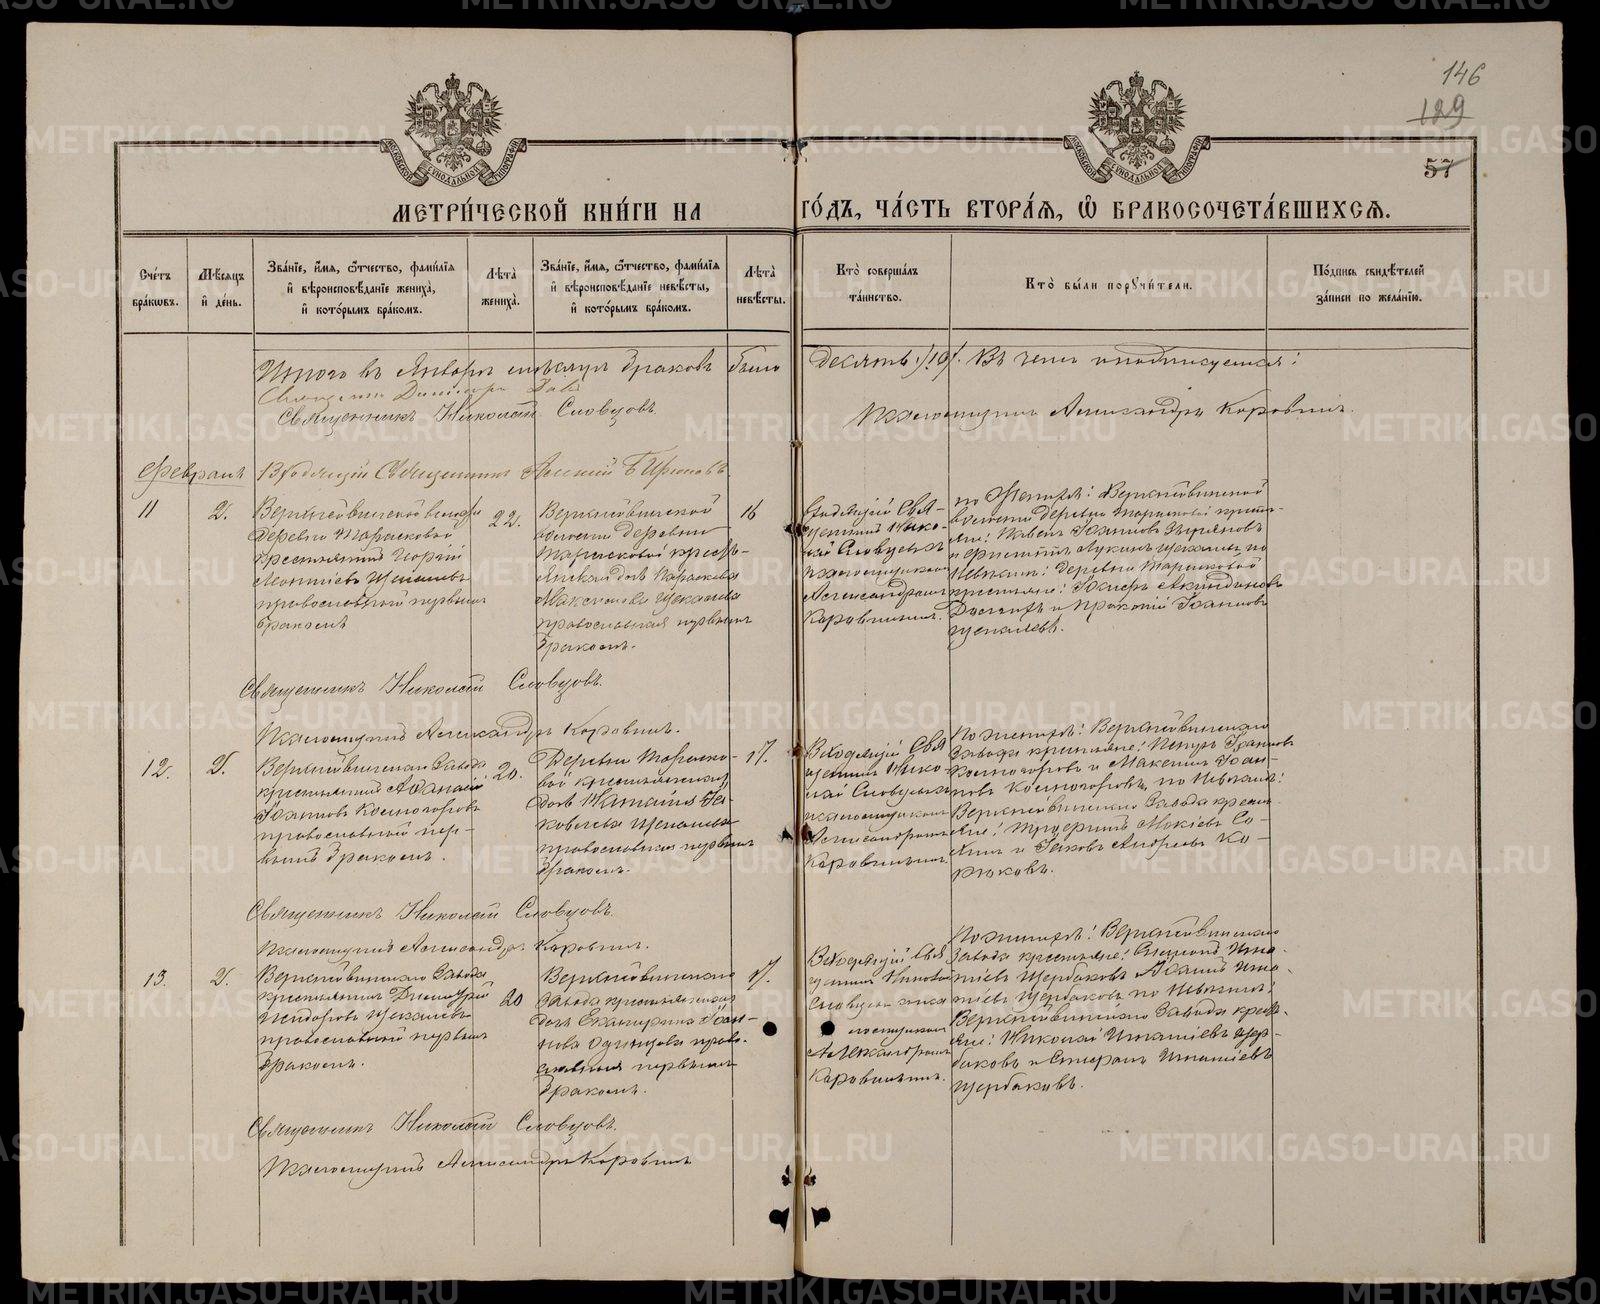 146
189
57
МЕТРИ́ЧЕСКОЙ КНИ́ГИ НА ГО́ДЪ, ЧА́СТЬ ВТОРА́Я, Ѿ БРАКОСОЧЕТА́ВШИХСЯ.
Сче́тъ
бра́ковъ.
Мѣ́сяцъ
и҆ де́нь.
Зва́нїе, и҆́мя, ѻ҆́тчество, фами́лїя
и҆ вѣроисповѣ́данїе жениха̀,
и҆ кото́рымъ бра́комъ.
Лѣ́та
жениха̀.
Зва́нїе, и҆́мя, ѻ҆́тчество, фами́лїя
и҆ вѣроисповѣ́данїе невѣ́сты,
и҆ кото́рымъ бра́комъ.
Лѣ́та
невѣ́сты.
Кто̀ соверша́лъ
та́инство.
Кто̀ бы́ли порꙋчи́тели.
По́дпись свидѣ́телей
за́писи по жела́нїю.
Итого въ Январѣ мѣсяцѣ браковъ было десять /10/. Въ чемъ и подписуемся:
Священникъ Николай Словцовъ
Псаломщикъ Александръ Коровинъ.
Февраль
11
2.
Верхнейвинской волости
деревни Тарасковой
крестьянинъ Георгій
Леонтіевъ
православный первымъ
бракомъ
22.
Верхнейвинской
волости деревни
Тарасковой кресть-
янская дочь Параскева
Максимова Щекалева
православная первымъ
бракомъ.
16
Входящій Свя-
щенникъ Нико-
лай Словцовъ съ
псаломщикомъ
Александромъ
Коровинымъ.
по Женихѣ: Верхнейвинской
волости деревни Тарасковой кресть-
яне: Павелъ Іоанновъ
Лукинъ по
Невѣстѣ: деревни Тарасковой
крестьяне:
и Прокопій Іоанновъ
Щекалевы.
Священникъ Николай Словцовъ.
Псаломщикъ Александръ Коровинъ.
12.
2.
Верхнейвинскаго Завода
крестьянинъ Аѳанасій
Іоанновъ Косногоровъ
православный пер-
вымъ бракомъ.
20.
Деревни Тараско-
вой крестьянская
дочь Наталія Іа-
ковлева Щекалева
православная первымъ
бракомъ.
17.
Входящій Свя-
щенникъ Нико-
лай Словцовъ съ
псаломщикомъ
Александромъ
Коровинымъ.
По женихѣ: Верхнейвинскаго
Завода крестьяне: Петръ Іоанновъ
Косногоровъ и Максимъ Іоан-
новъ Косногоровъ, по Невѣстѣ:
Верхнейвинскаго Завода кресть-
яне:
и Іаковъ Андреевъ Ко-
рюковъ.
Священникъ Николай Словцовъ.
Псаломщикъ Александръ Коровинъ.
13.
2.
Верхнейвинскаго Завода
крестьянинъ Димитрій
Исидоровъ Щекалевъ
православный первымъ
бракомъ.
20
Верхнейвинскаго
завода крестьянская
дочь Екатерина Іоан-
нова Одинцова право-
славная первымъ
бракомъ.
17.
Входящій Свя-
щенникъ Николай
Словцовъ съ пса-
ломщикомъ
Александромъ
Коровинымъ.
По женихѣ: Верхнейвинскаго
Завода крестьяне: Игна-
тіевъ Щербаковъ Игна-
тіевъ Щербаковъ по Невѣстѣ:
Верхнейвинскаго Завода кресть-
яне: Николай Игнатіевъ Щер-
баковъ и Игнатіевъ
Щербаковъ.
Священникъ Николай Словцовъ.
Псаломщикъ Александръ Коровинъ
METRIKI.GASO-URAL.RU